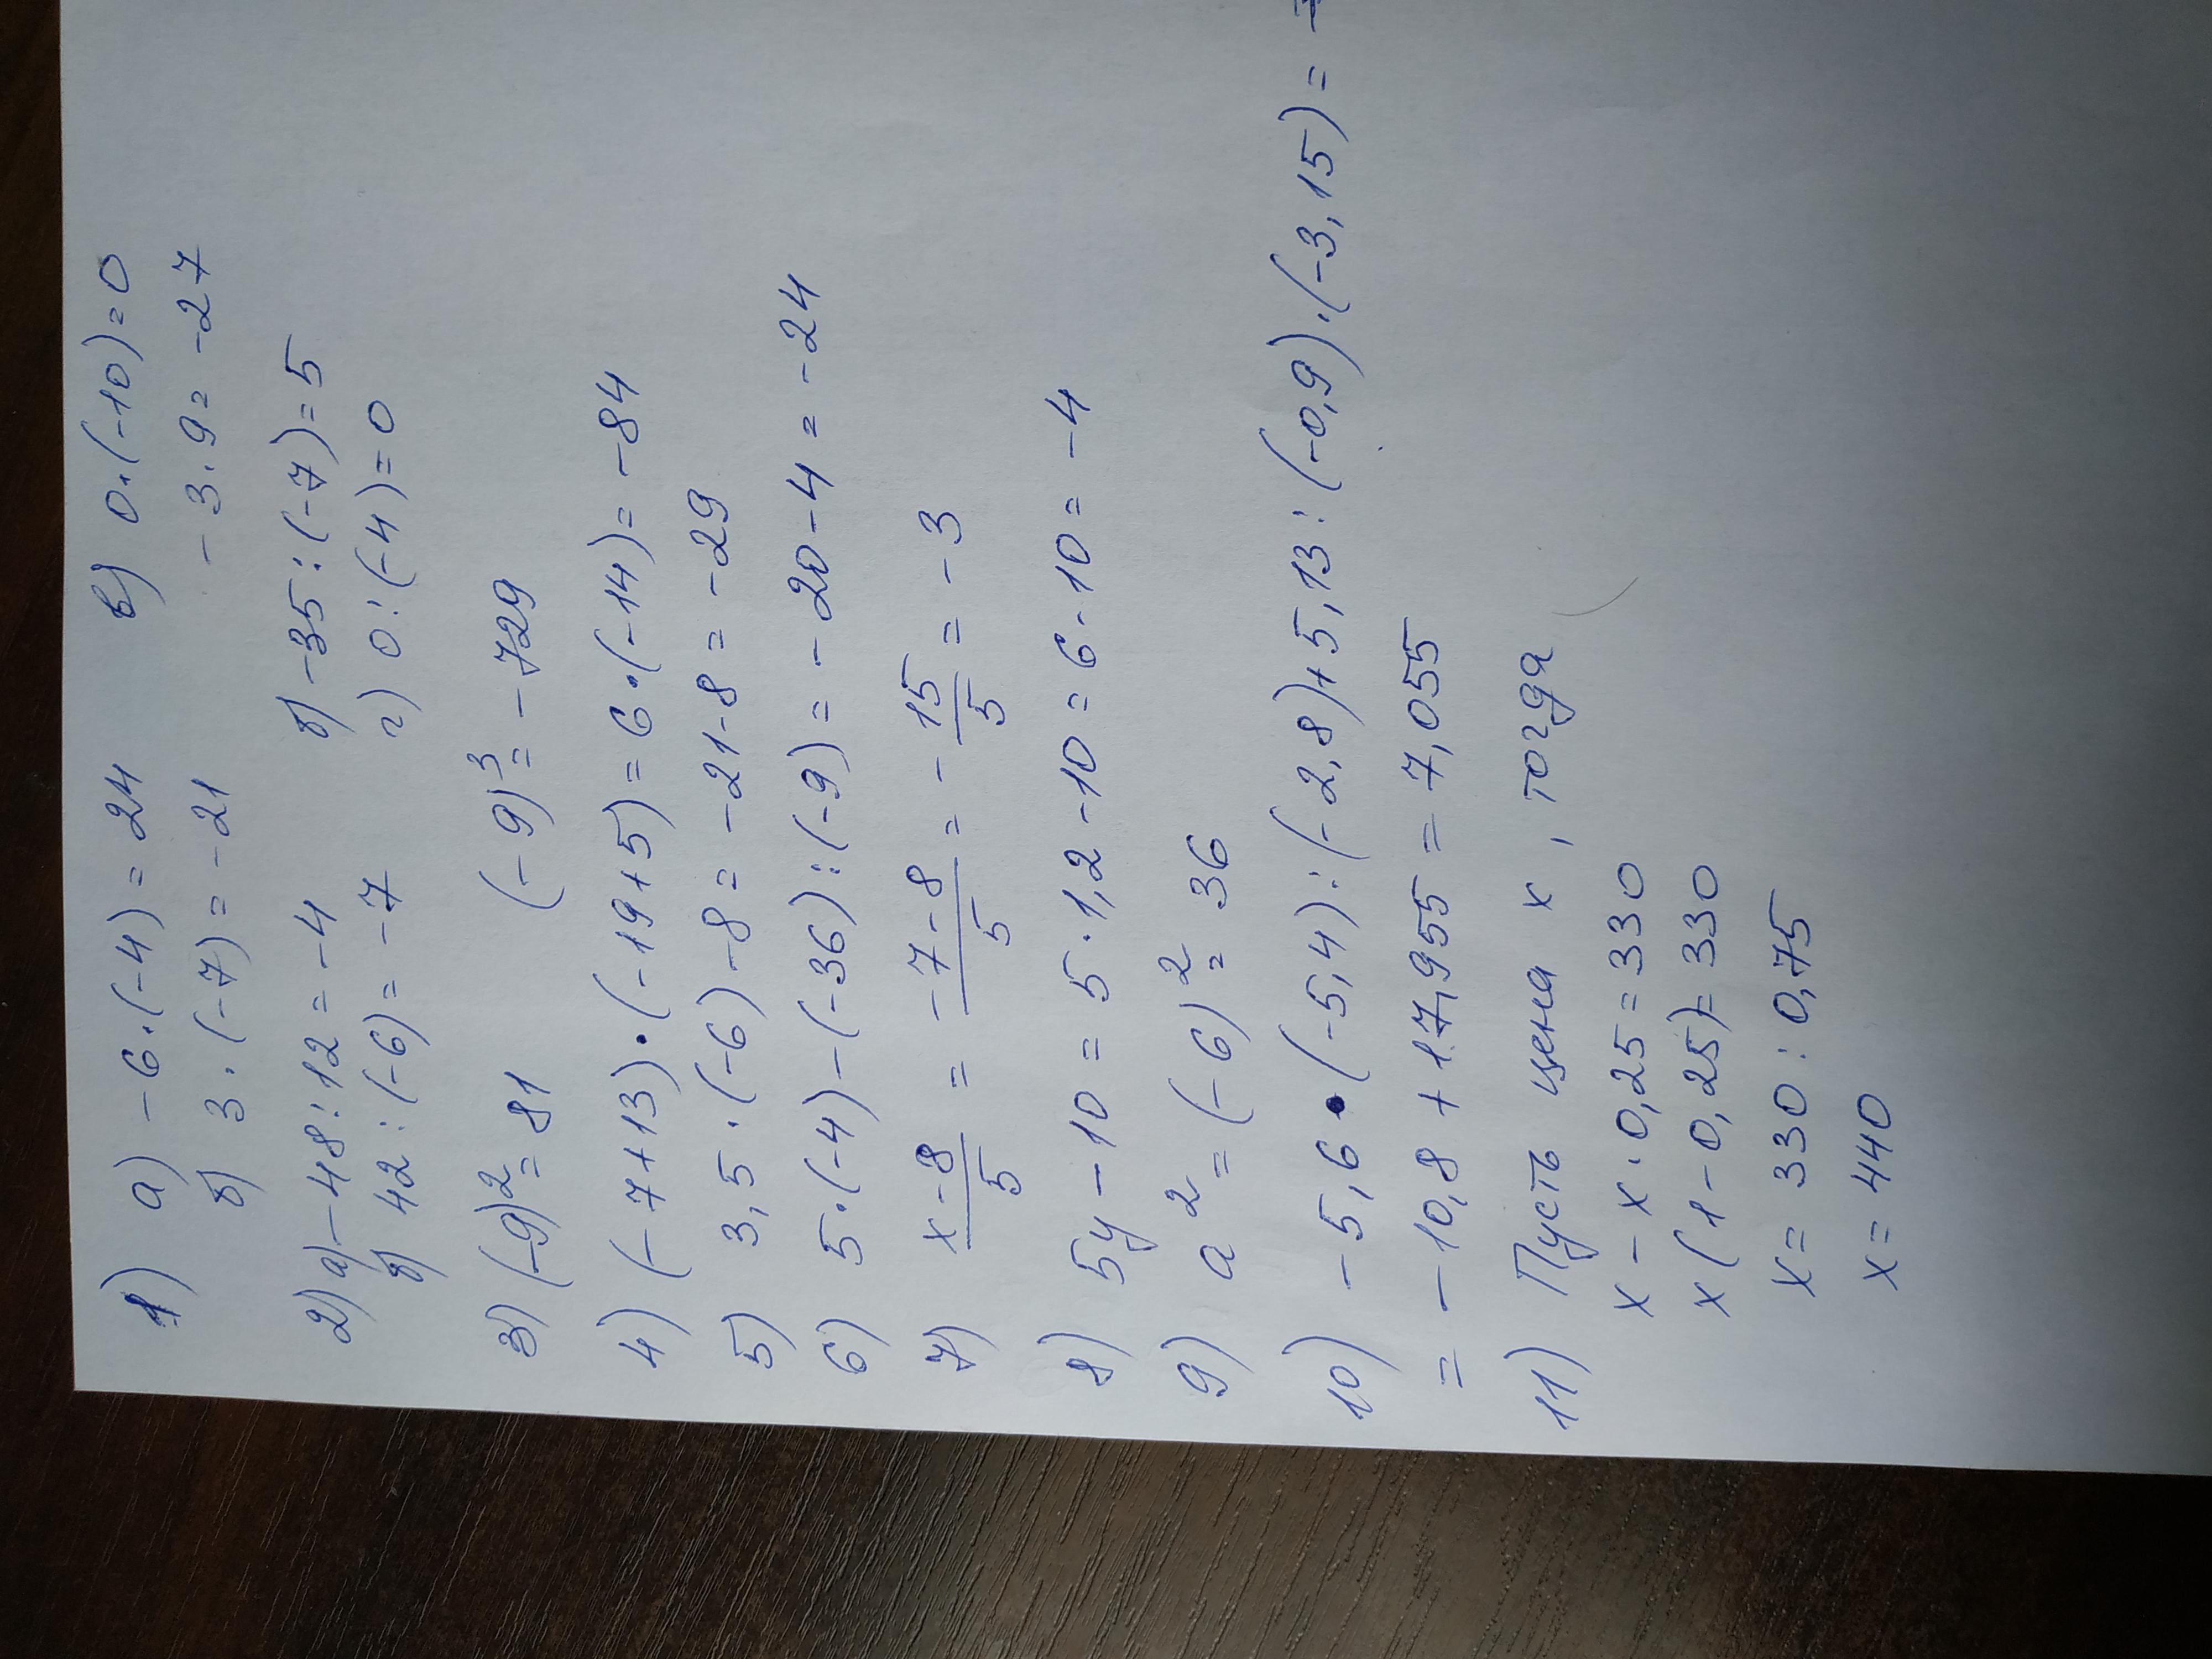 1) а) -6·(-4)=24 в) 0·(-10)=0
б) 3·(-7)=-21 -3·9=-27
2) а) -48:12=-4 б) -35:(-7)=5
в) 42:(-6)=-7 г) 0:(-4)=0
3) (-9)²=81 (-9)³=-729
4) (-7+13)·(-19+5)=6·(-14)=-84
5) 3,5·(-6)-8=-21-8=-29
6) 5·(-4)-(-36):(-9)=-20-4=-24
7) x-8/5 = -7-8/5 = -15/5 = -3
8) 5y-10=5·1,2-10=6-10=-4
9) a²=(-6)²=36
10) -5,6·(-5,4):(-2,8)+5,13:(-0,9)·(-3,15)=
=-10,8+17,955=7,055
11) Пусть цена x, тогда
x-x·0,25=330
x(1-0,25)=330
x=330:0,75
x=440